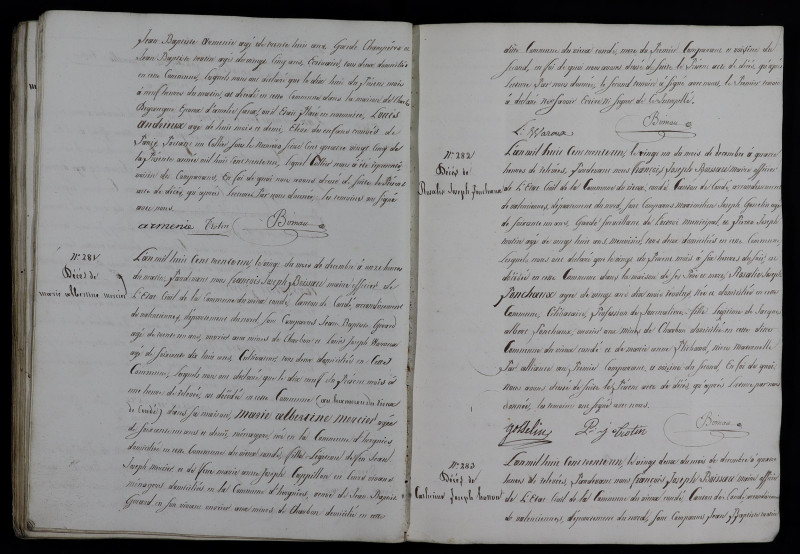 Jean Baptiste armenie agé de trente huit ans, Garde Champêtre et
Jean Baptiste trotin agé de vingt cinq ans, Ecrivain, tous deux domiciliés
en cette Commune, lesquels nous ont déclaré que le dix huit du Présent mois
à neuf heures du matin, est décédé en cette Commune dans la maison de
Louis
andrieux agé de huit mois et demi, Elève des enfans trouvés de
Paris, Portant un Collier sous le Numéro sept Cent quatre vingt Cinq de
la Présente année mil huit Cent trente un, lequel Collier nous a été représenté
par les Comparans, En foi de quoi nous avons dressé de suite le Présent
acte de décès, qu'après lecture Par nous donnée, les témoins ont signé
avec nous.
armenie Trotin Boneau
N° 281
Décès de
marie albertine mercier
L'an mil huit Cent trente un, le vingt du mois de décembre à onze heures
du matin, Pardevant nous françois Joseph Buissart maire officier de
L'Etat Civil de la Commune du vieux condé, Canton de Condé, arrondissement
de valenciennes, département du nord, sont Comparus Jean Baptiste Guiard
agé de trente un ans, ouvrier aux mines de Charbon et Louis Joseph
agé de soixante dix huit ans, Cultivateur, tous deux domiciliés en Cette
Commune, lesquels nous ont déclaré que le dix neuf du Présent mois à
une heure de relevée, est décédée en cette Commune (au hameau du vieux
Condé) dans sa maison, marie albertine mercier agée
de soixante ans et demi, ménagère, née en la Commune d'hergnies
domiciliée en cette Commune du vieux condé, fille Légitime de feu Jean
Joseph mercier et de feue marie anne Joseph Cappillon en leurs vivans
ménagers domiciliés en la Commune d'hergnies, veuve de Jean Baptiste
Guiard en son vivant ouvrier aux mines de Charbon domicilié en cette
dite Commune du vieux condé, mère du Premier Comparant et voisine du
second, en foi de quoi nous avons dressé de suite le Présent acte de décès, qu'après
lecture Par nous donnée, le second témoin a signé avec nous, le Premier témoin
a déclaré ne savoir Ecrire ni signer de ce Interpellé.
L. Boneau
N° 282
Décès de
Rosalie Joseph Ponchaux
L'an mil huit Cent trente un, le vingt un du mois de décembre à quatre
heures de relevée, Pardevant nous françois Joseph Buissart maire officier
de L'Etat Civil de la Commune du vieux condé Canton de Condé, arrondissement
de valenciennes, département du nord, sont Comparus maximilien Joseph Gosselin agé
de soixante ans, Garde surveillant de l'octroi municipal, et Pierre Joseph
trotin agé de vingt huit ans, Musicien, tous deux domiciliés en cette Commune,
lesquels nous ont déclaré que le vingt du Présent mois à six heures du soir, est
décédée en cette Commune dans la maison de ses Père et mère, Rosalie Joseph
Ponchaux agée de vingt ans dix mois révolus, née et domiciliée en cette
Commune, Célibataire, Profession de Journalière, fille Légitime de Jacques
albert Ponchaux, ouvrier aux mines de Charbon domicilié en cette dite
Commune du vieux condé et de marie anne
Par alliance au Premier Comparant, et voisine du second. En foi de quoi,
Nous avons dressé de suite le Présent acte de décès, qu'après Lecture par nous
donnée, les témoins ont signé avec nous.
gosselin P. j trotin Boneau
N° 283
Décès de
Catherine Joseph
L'an mil huit Cent trente un, le vingt deux du mois de décembre à quatre
heures de relevée, Pardevant nous françois Joseph Buissart maire officier
de L'Etat Civil de la Commune du vieux condé Canton de Condé, arrondissement
de valenciennes, département du nord, sont Comparus, Jean Baptiste trotin